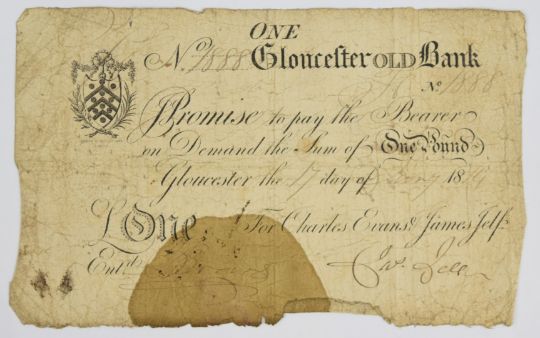 ONE
No 1888 Gloucester OLD Bank
No 1888
I Promise to pay the Bearer
on Demand the Sum of One Pound
Gloucester the 17 day of 18
£ One For Charles Evans & James Jelf
Entd